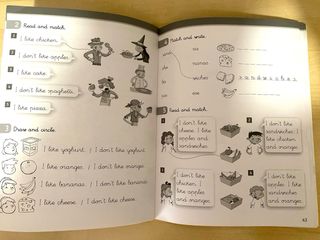 2 Read and match.
1 I like chicken.
2 I don't like apples.
3 I like cake.
4 I don't like spaghetti.
5 I like pizza.
3 Draw and circle.
I like yoghurt. / I don't like yoghurt.
I like oranges. / I don't like oranges.
I like bananas. / I don't like bananas.
I like cheese. / I don't like cheese.
Match and write.
Read and match.
1 I don't like
cheese. I like
apples and
sandwiches.
2 I don't like
sandwiches. I
like cheese
and oranges.
3 I don't like
chicken. I
like apples
and oranges.
4 I don't like
apples. I like
sandwiches
and oranges.
63